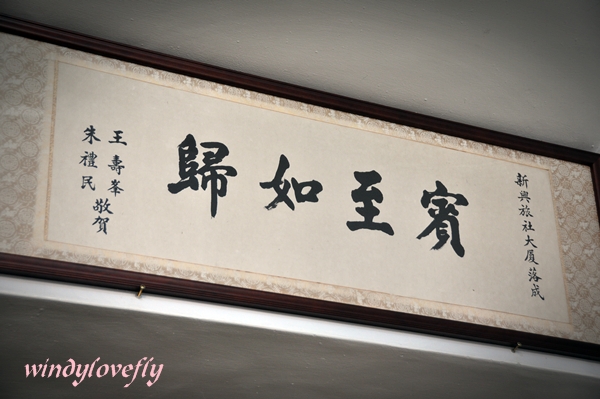 新興旅社大厦落成
賓至如歸
王壽峯
朱禮民 敬賀
windylovefly